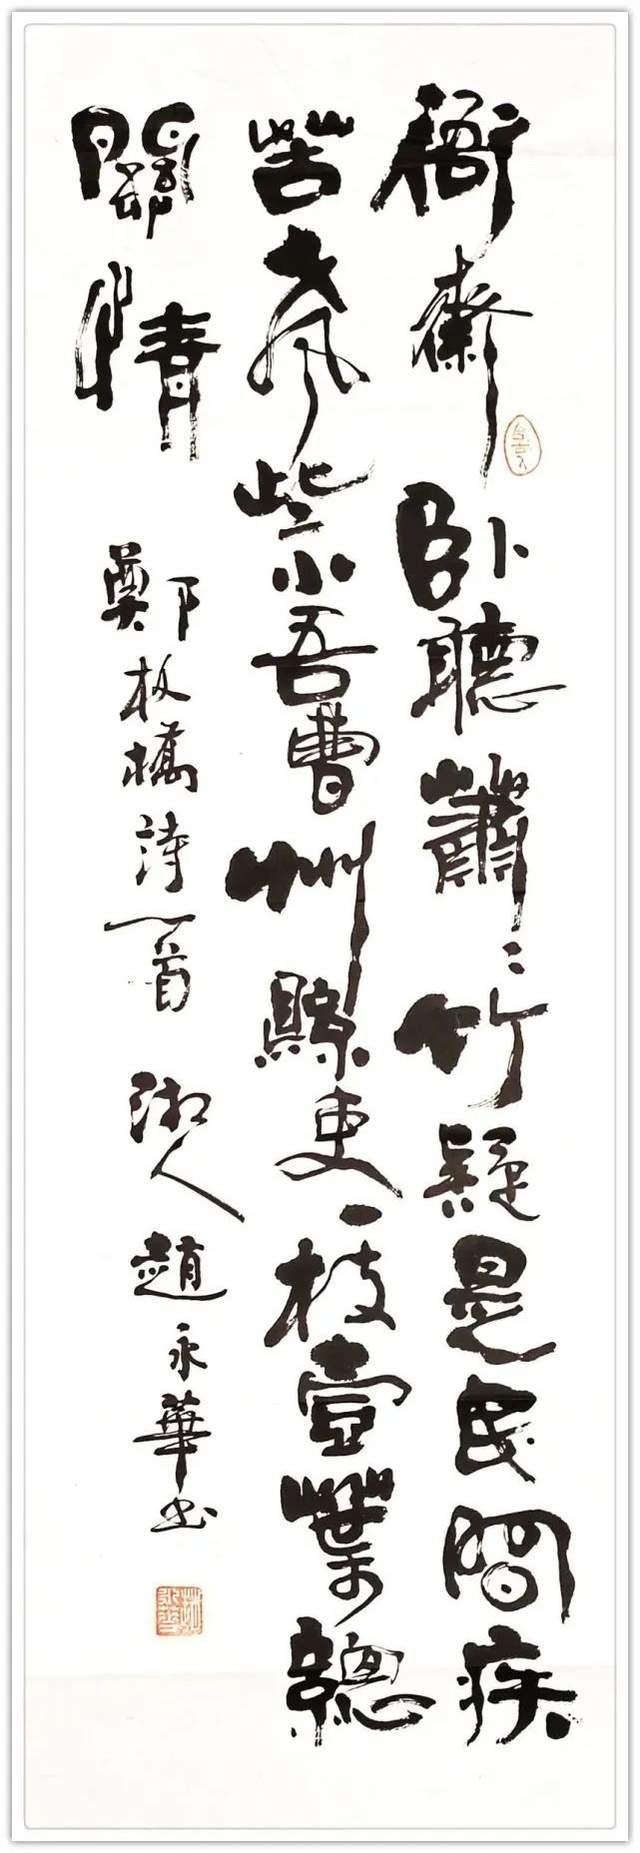 衙齋卧聽蕭〻竹疑是民間疾
苦声些小吾曹州縣吏一枝壹葉總
關情
鄭板橋詩一首 湘人趙永華书